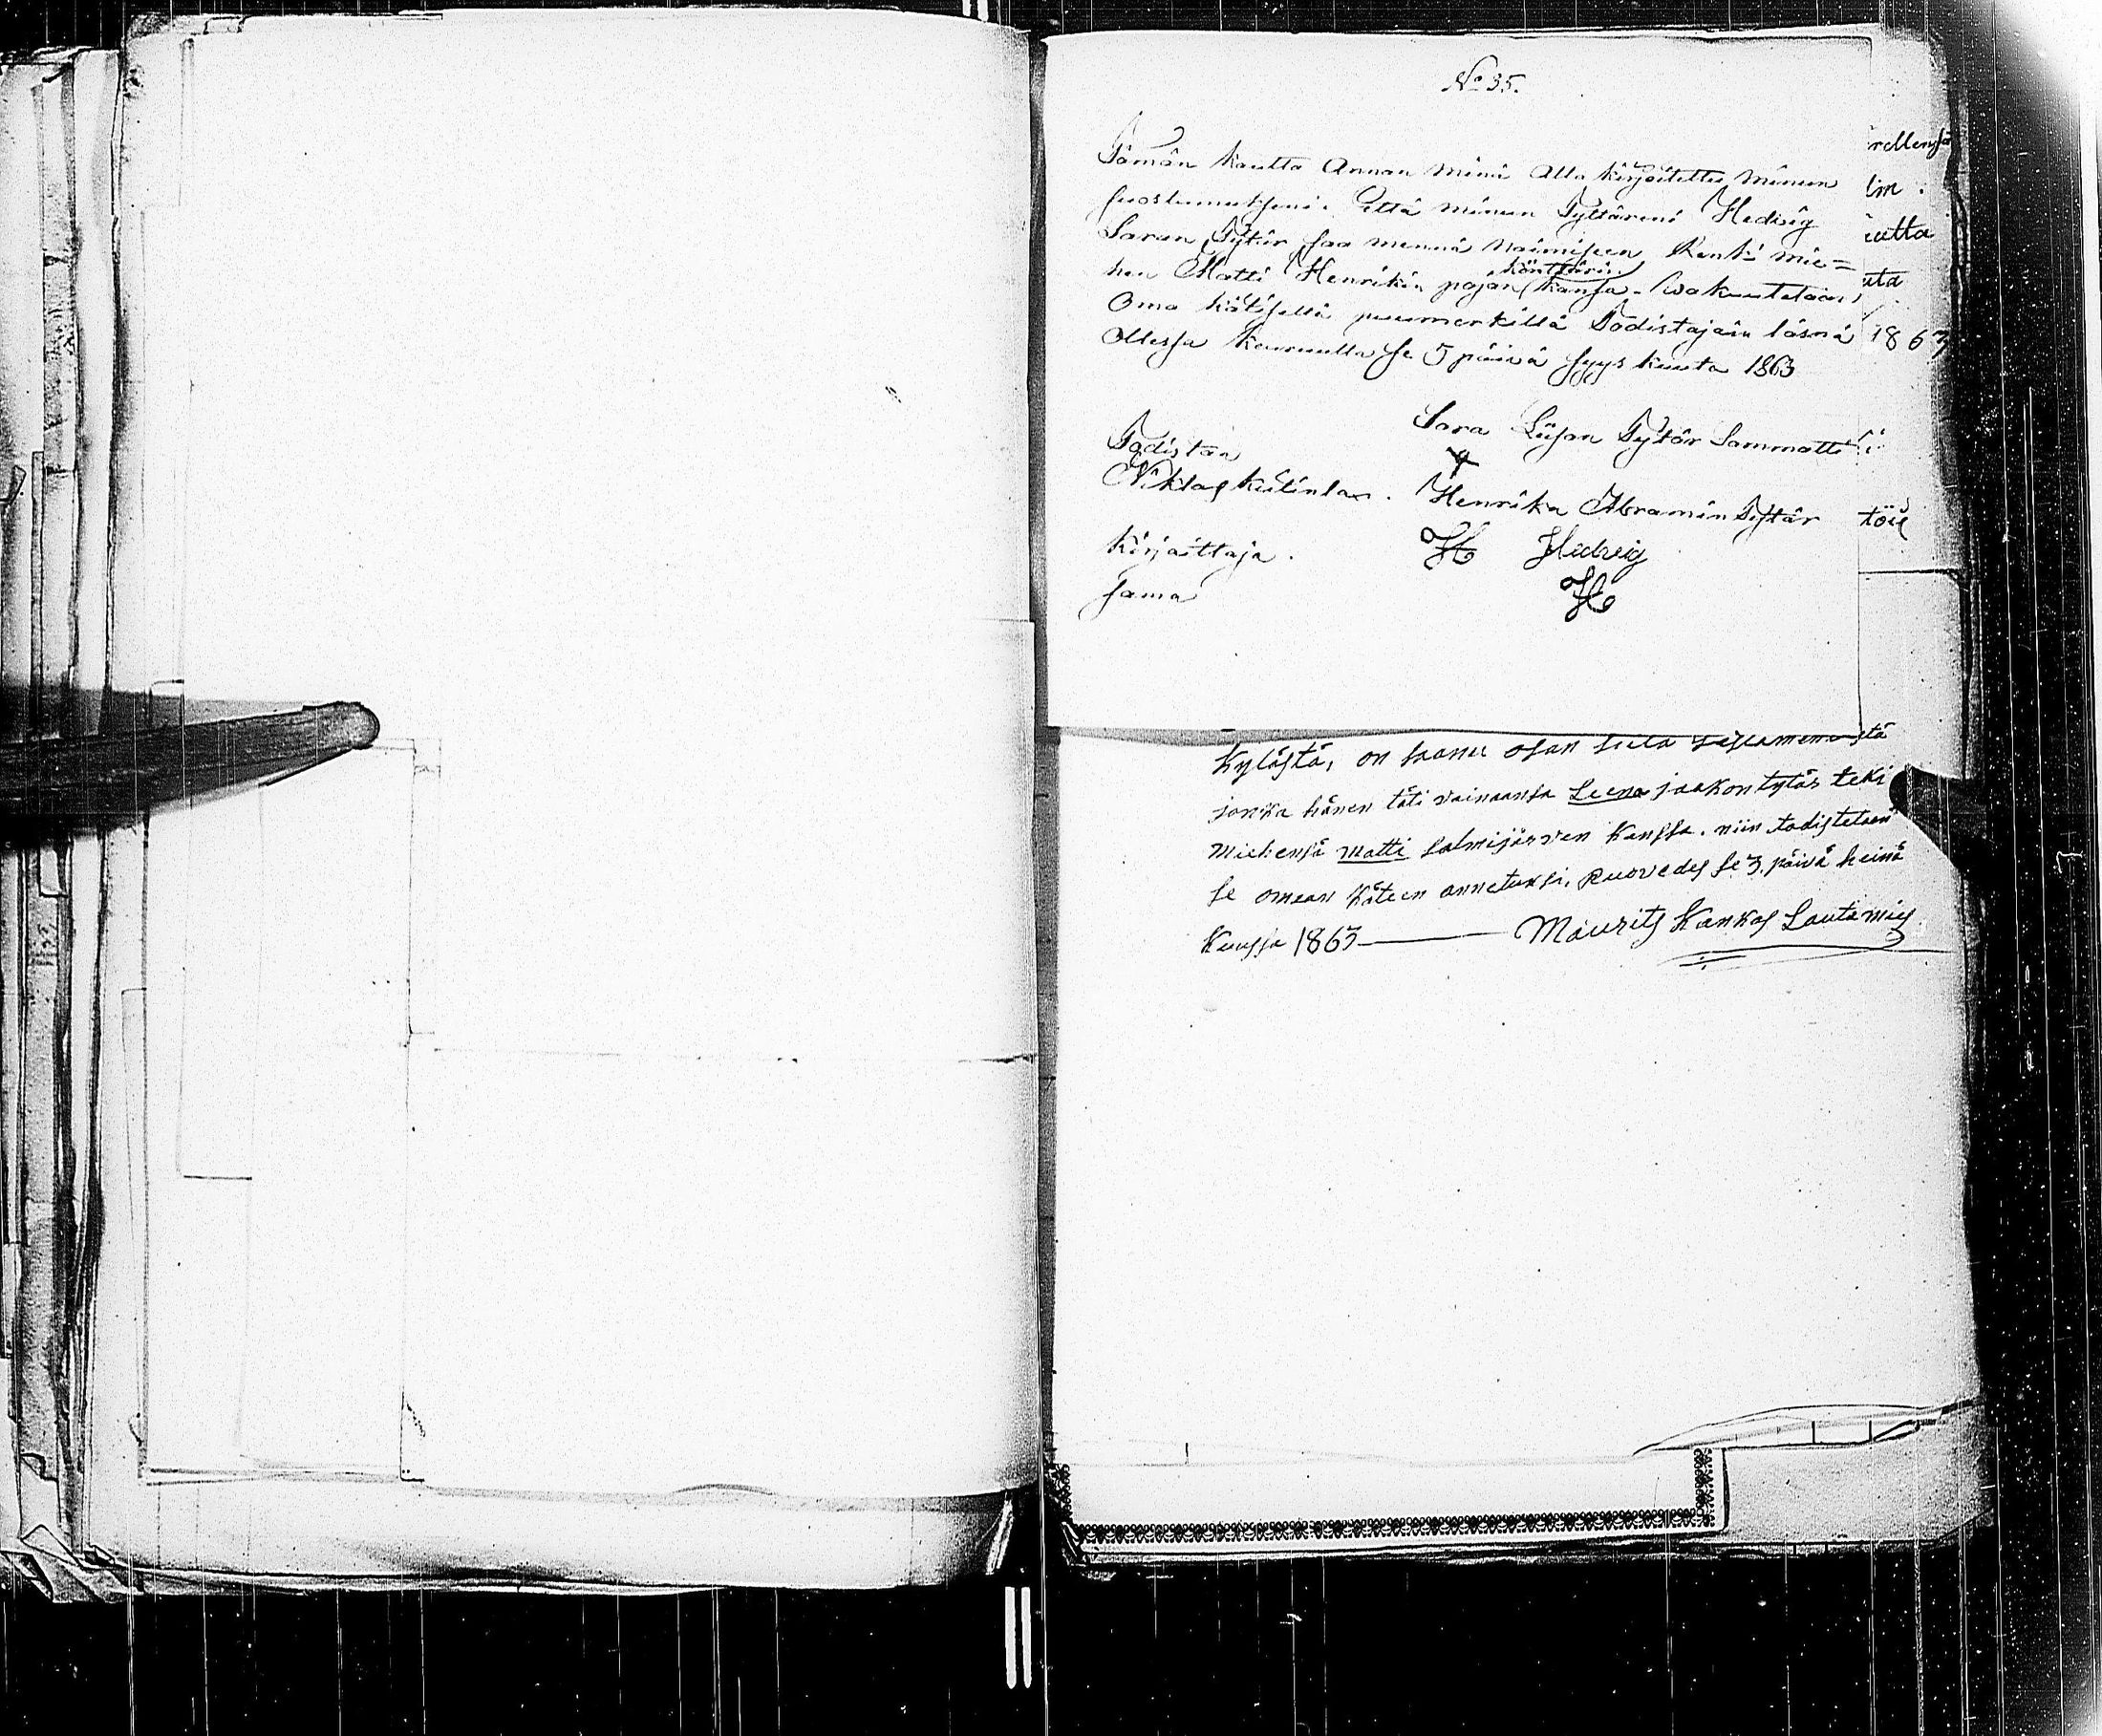 No 35.
Tämän kautta Annan minä Alla kirjoitettu minun
suostumukseni. Että minun Tyttäreni Hedvig
Saran Tytär saa mennä naimiseen Renki mie=
hen Matti Henrikin pojan köntturin kansa. Wakuutetaan
Oma kätisellä puumerkillä Todistajain läsnä
Ollessa keuruulla se 5 päivä syys kuuta 1863
Sara Liisan Tytär Sammatti
Todistan
Niklas
Henrika Abramin Tytär
kirjoittaja.
H Hedvig
sama
H
rellensä
lin.
utta
uta
1863
töis
kylästä, on saanu osan siitä testamentistä
jonka hänen täti vainaansa Leena jaakontytär teki
miehensä Matti Salmijärven kanssa. niin todistetaan
se omaan käteen annetuksi, Ruovedes se 3. päivä heinä
kuussa 1863 — Maurits Kankas Lautamies